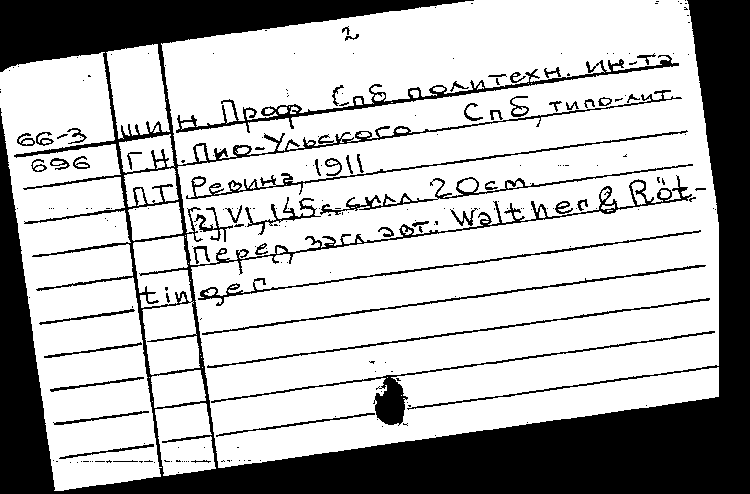 2
66-3 шин. Проф. Спб политехн. ин-та
696 Г.Н. Пио-Ульского. Спб, типо-лит.
П.Т. Ревина, 1911.
[2], VI, 145 с. с илл. 20 см.
Перед загл. авт.: Walther & Röt-
tinger